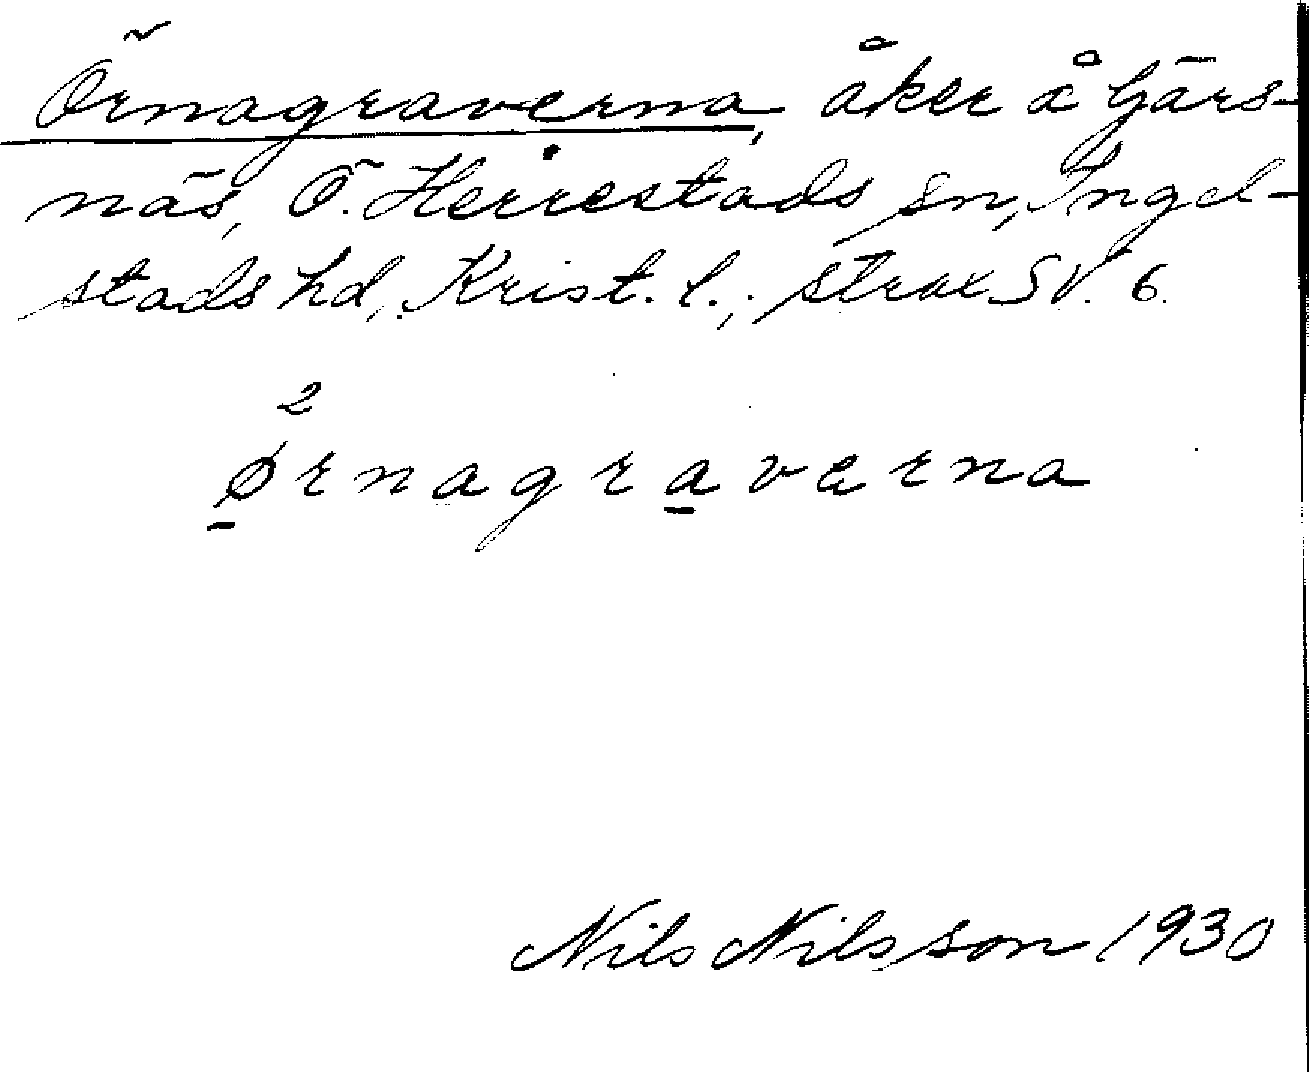 Örnagraverna, åker å Gärs-
näs, Ö. Herrestads sn, Ingel-
stads hd, Krist. l., strax SV. 6.
2
ø̱rnagra̱verna
Nils Nilsson 1930